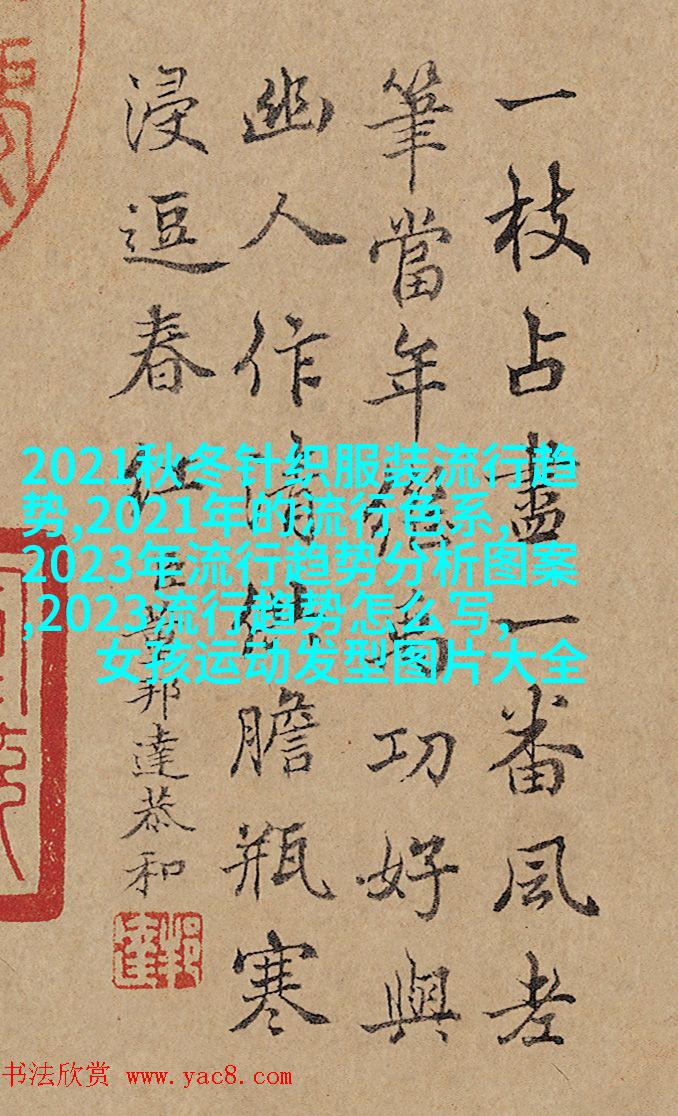 一枝占盡一番風老
筆當年功好與
幽人作清供膽瓶寒
浸逗春紅
臣董邦達恭和
邦達
2021秋冬针织服装流行趋
势,2021年的流行色系,
2023年流行趋势分析图案
,2023流行趋势怎么写,
女孩运动发型图片大全
书法欣赏 www.yac8.com